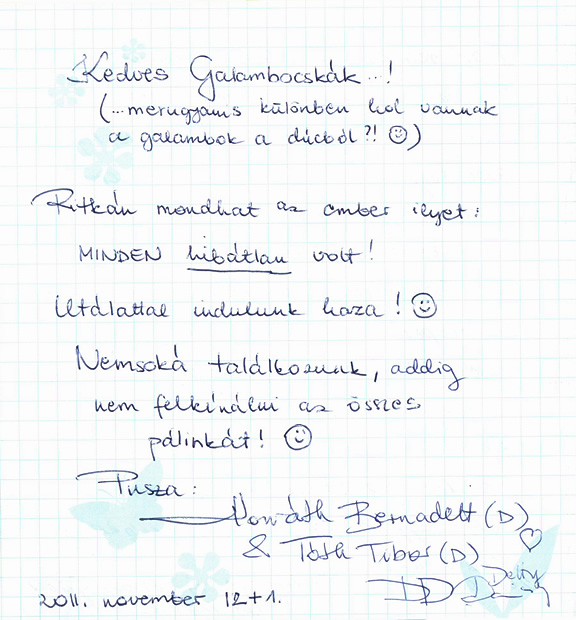 Kedves Galambocskák...!
(...merugyanis különben hol vannak
a galambok a dúcból?! ☺)
Ritkán mondhat az ember ilyet:
MINDEN hibátlan volt!
Utálattal indulunk haza! ☺
Nemsoká találkozunk, addig
nem felkínálni az összes
pálinkát! ☺
Pusza:
Horváth Bernadett (D)
& Tóth Tibor (D) ♡
2011. november 12+1.